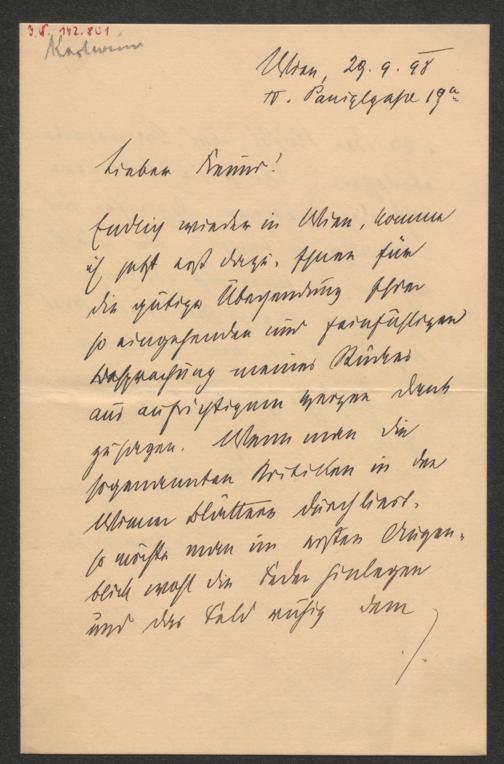 J.N. 142.801
Karlweis
Wien, 29.9.98
IV. Panigelgasse 19a
Lieber Freund!
Endlich wieder in Wien, komme
ich jetzt erst dazu, Ihnen für
die gütige Übersendung Ihrer
so eingehenden und feinfühligen
Besprechung meines Stückes
aus aufrichtigem Herzen Dank
zu sagen. Wenn man die
sogenannten Kritiken in den
Wiener Blättern durchliest,
so möchte man im ersten Augen-
blick wohl die Feder hinlegen
und das Feld ruhig dem
./.